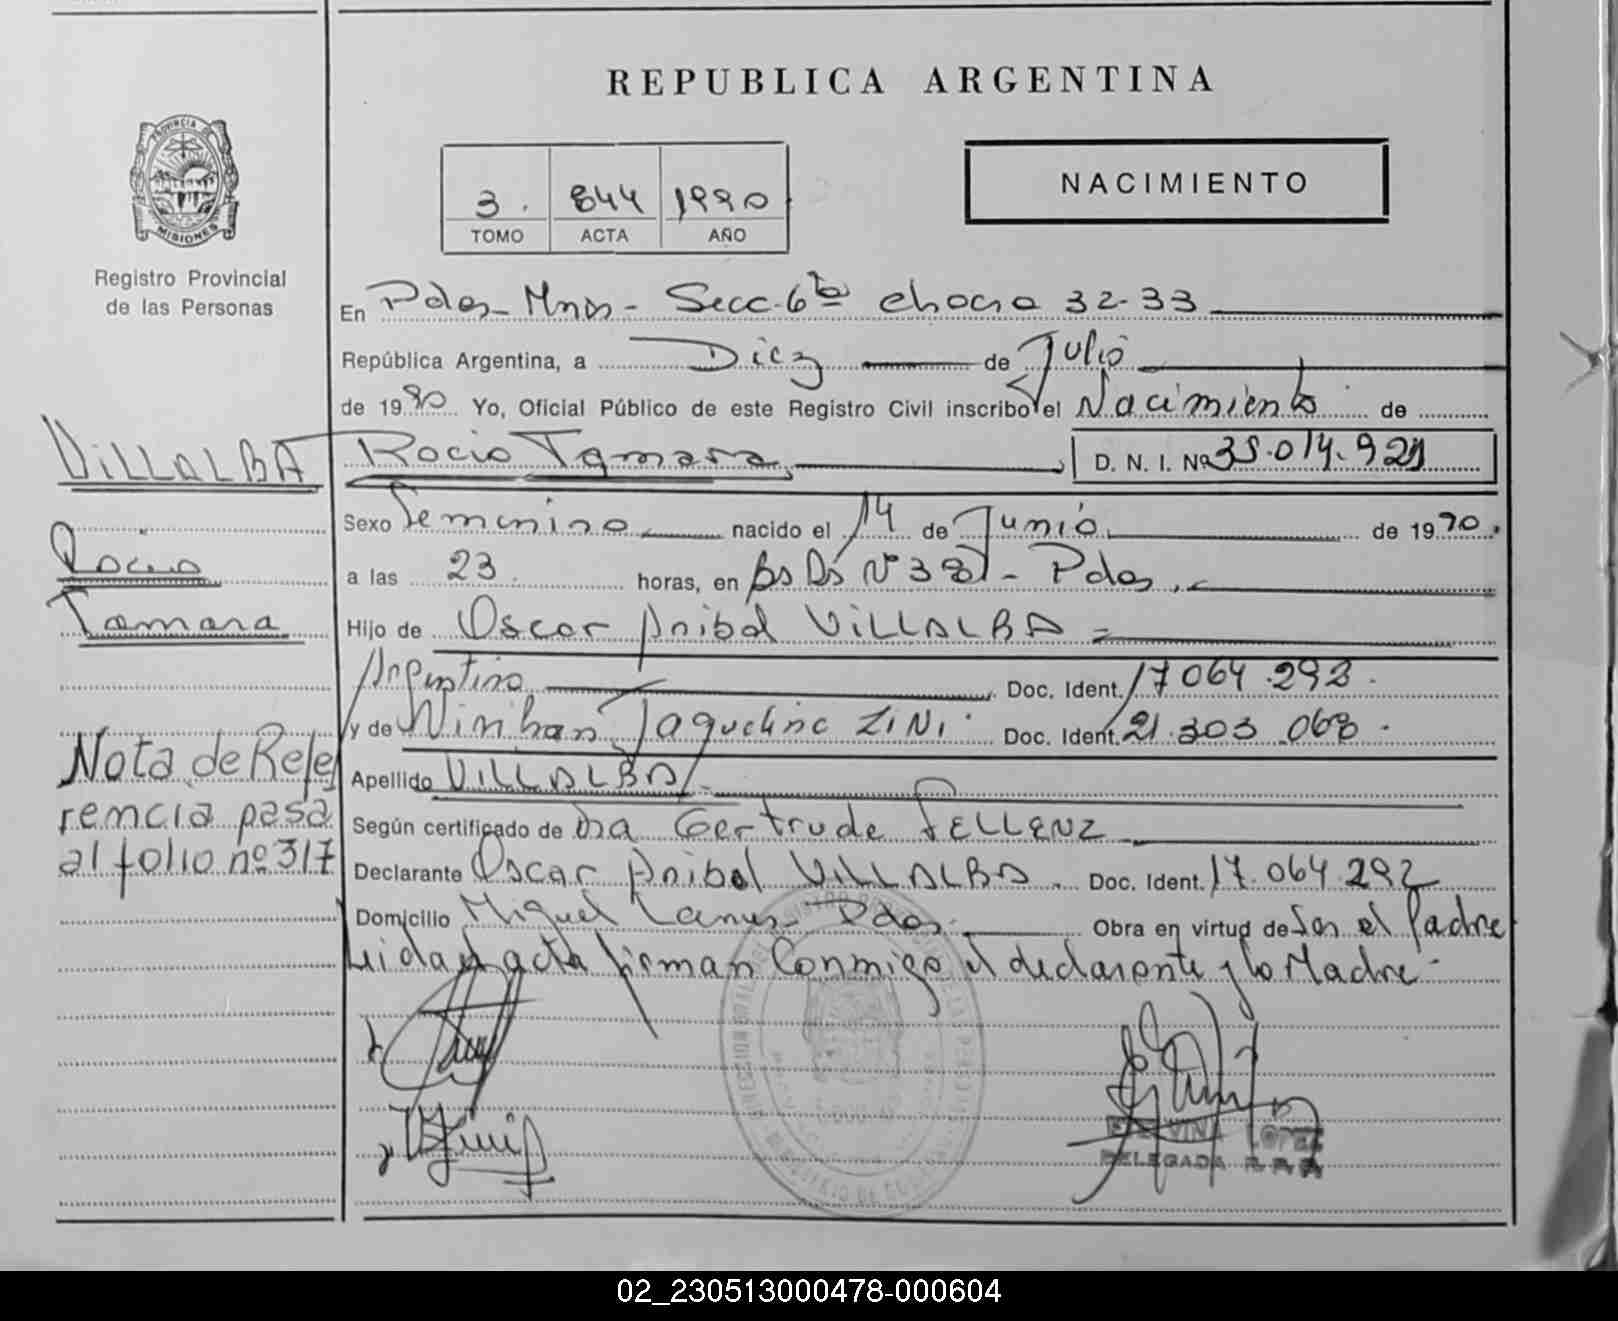 REPUBLICA ARGENTINA
PROVINCIA DE
MISIONES
Registro Provincial
de las Personas
3. 844 1990
TOMO ACTA AÑO
NACIMIENTO
En Pdas-Mnes- Secc-6ta chacra 32-33
República Argentina, a Diez de Julio
de 1990 Yo, Oficial Público de este Registro Civil inscribo el Nacimiento de
VILLALBA Rocio Tamara D. N. I. Nº 35.014.921
Sexo Femenino nacido el 14 de Junio de 1990.
Rocio
a las 23 horas, en Bs As Nº 387 - Pdas,
Tamara
Hijo de Oscar Anibal VILLALBA
Argentino Doc. Ident. 17 064.292.
y de Jaqueline ZINI. Doc. Ident. 21.303.068.
Nota de Refe
rencia pasa
al folio nº 317
Apellido VILLALBA
Según certificado de Dra Gertrude FELLENZ
Declarante Oscar Anibal VILLALBA. Doc. Ident. 17.064.292
Domicilio Miguel Lanus- Pdas. Obra en virtud de Ser el Padre
Leida el acta firman Conmigo el declarante y la Madre-
LOPEZ
DELEGADA R.P.P.
02_230513000478-000604